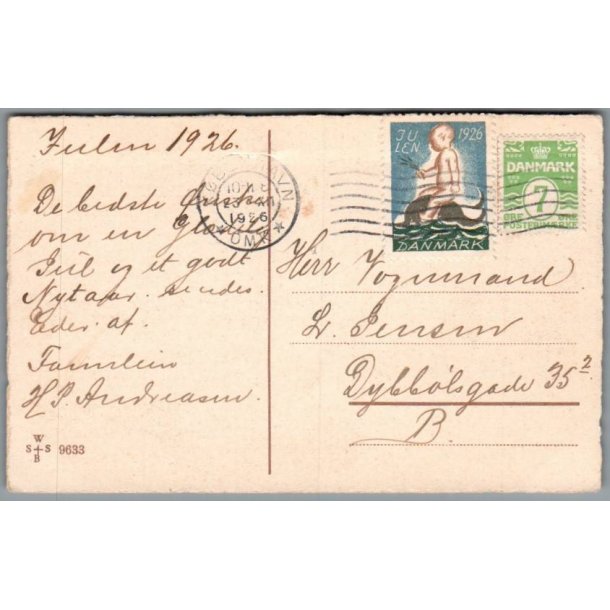 Julen 1926.
De bedste Ønsker
om en Glædelig
Jul og et godt
Nytaar sendes
Eder af
Familien
H.P. Andreasen
W
S S
B
9633
KØBENHAVN
1926
OMK
JU
LEN
1926
DANMARK
DANMARK
7
ØRE ØRE
POSTFRIMÆRKE
Herr Vognmand
L. Jensen
Dybbølsgade 35²
B.